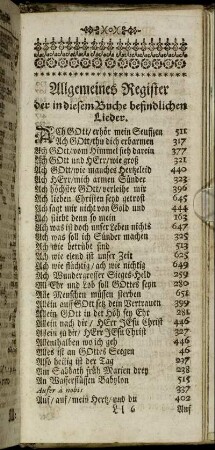 Allgemeines Register
der in diesem Buche befindlichen
Lieder.
ACh GOtt/ erhör mein Seuffzen 511
Ach GOtt/ thu dich erbarmen 317
Ach GOtt/ vom Himmel sieh darein 377
Ach GOtt und HErr/ wie groß 321
Ach GOtt/ wie manches Hertzeleid 440
Ach HErr/ mich armen Sünder 322
Ach höchster GOtt/ verleihe mir 396
Ach lieben Christen seyd getrost 645
Ach sagt mir nicht von Gold und 444
Ach stirbt denn so mein 163
Ach was ist doch unser Leben nichts 647
Ach was soll ich Sünder machen 325
Ach wie betrübt sind 513
Ach wie elend ist unser Zeit 625
Ach wie flüchtig/ ach wie nichtig 649
Ach Wunder-grosser Sieges-Held 259
All Ehr und Lob soll GOttes seyn 280
Alle Menschen müssen sterben 651
Allein auf GOtt setz dein Vertrauen 399
Allein GOtt in der Höh sey Ehr 281
Allein nach dir/ HErr JEsu Christ 446
Allein zu dir/ HErr JEsu Christ 327
Allenthalben wo ich geh 446
Alles ist an GOttes Seegen 46
Also heilig ist der Tag 227
Am Sabbath früh Marien drey 238
An Wasserflüssen Babylon 515
Aufer à nobis 337
Auf/ auf/ mein Hertz/ und du 402
Ll 6 Auf